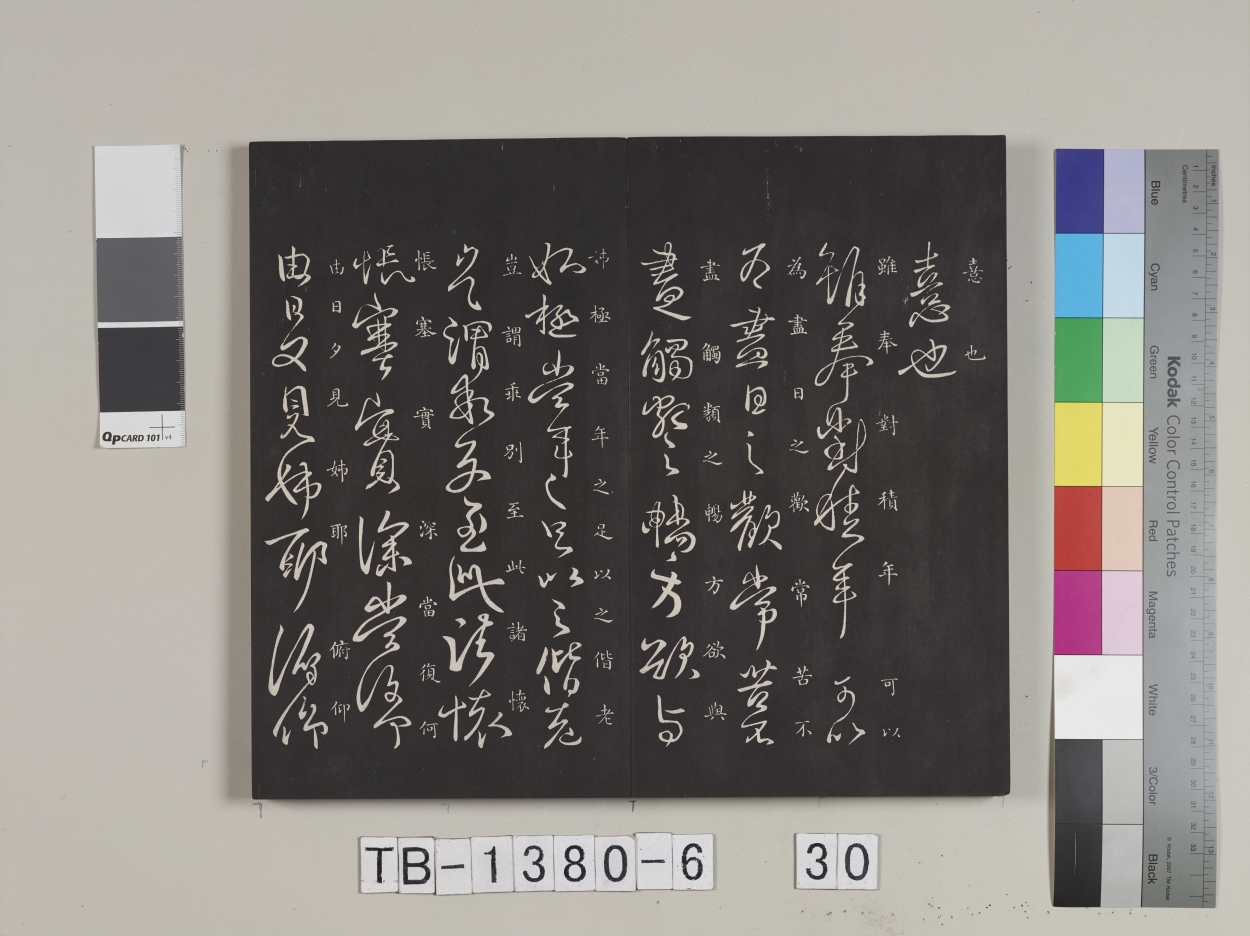 憙也
憙也
雖奉對積年可以
雖奉對積年可以
為盡日之歡常苦不
為盡日之歡常苦不
盡觸類之暢方欲與
盡觸類之暢方欲與
姊極當年之足以之偕老
姊極當年之足以之偕老
豈謂乖別至此諸懷
豈謂乖別至此諸懷
悵塞實深當復何
悵塞實深當復何
由日夕見姊耶俯仰
由日夕見姊耶俯仰
TB-1380-6 30
QPCARD 101 v4
Kodak Color Control Patches
Blue
Cyan
Green
Yellow
Red
Magenta
White
3/Color
Black
Inches
Centimetres